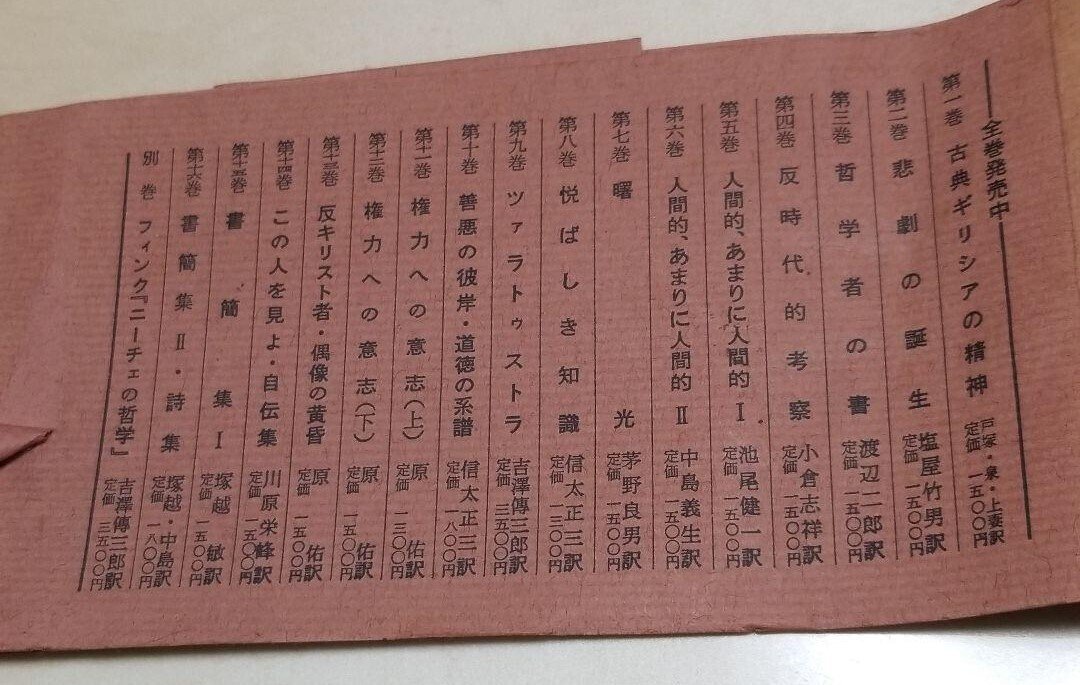 全巻発売中
第一巻 古典ギリシアの精神 戸塚・泉・上妻訳 定価 一五〇〇円
第二巻 悲劇の誕生 塩屋竹男訳 定価 一五〇〇円
第三巻 哲学者の書 渡辺二郎訳 定価 一五〇〇円
第四巻 反時代的考察 小倉志祥訳 定価 一五〇〇円
第五巻 人間的、あまりに人間的 Ⅰ 池尾健一訳 定価 一五〇〇円
第六巻 人間的、あまりに人間的 Ⅱ 中島義生訳 定価 一五〇〇円
第七巻 曙光 茅野良男訳 定価 一五〇〇円
第八巻 悦ばしき知識 信太正三訳 定価 一三〇〇円
第九巻 ツァラトゥストラ 吉澤傳三郎訳 定価 三五〇〇円
第十巻 善悪の彼岸・道徳の系譜 信太正三訳 定価 一八〇〇円
第十一巻 権力への意志(上) 原佑訳 定価 一三〇〇円
第十二巻 権力への意志(下) 原佑訳 定価 一五〇〇円
第十三巻 反キリスト者・偶像の黄昏 原佑訳 定価 一五〇〇円
第十四巻 この人を見よ・自伝集 川原栄峰訳 定価 一五〇〇円
第十五巻 書簡集Ⅰ 塚越敏訳 定価 一五〇〇円
第十六巻 書簡集Ⅱ・詩集 塚越・中島訳 定価 一八〇〇円
別巻 フィンク『ニーチェの哲学』 吉澤傳三郎訳 定価 三五〇〇円